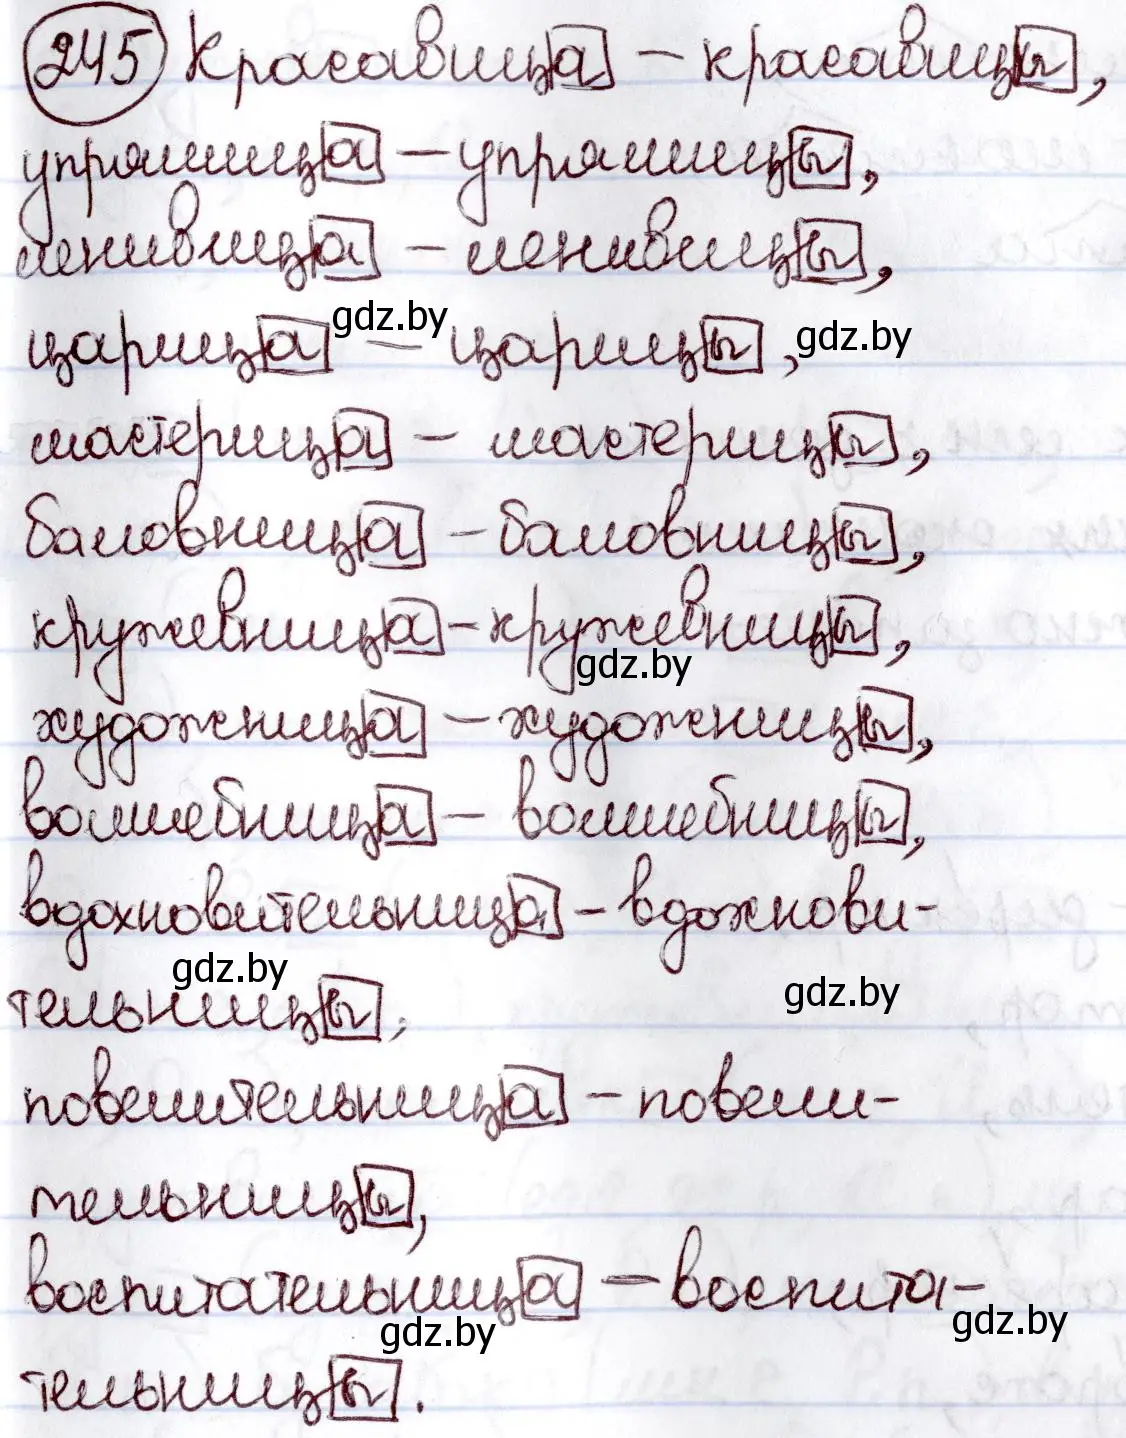 245 Красавица – красавицы,
упрямица – упрямицы,
ленивица – ленивицы,
gdz.by
царица – царицы,
gdz.by
мастерица – мастерицы,
баловница – баловницы,
кружевница – кружевницы,
gdz.by
художница – художницы,
волшебница – волшебницы,
вдохновительница – вдохнови-
gdz.by
gdz.by
тельницы,
повелительница – повели-
тельницы,
воспитательница – воспита-
gdz.by
gdz.by
тельницы.